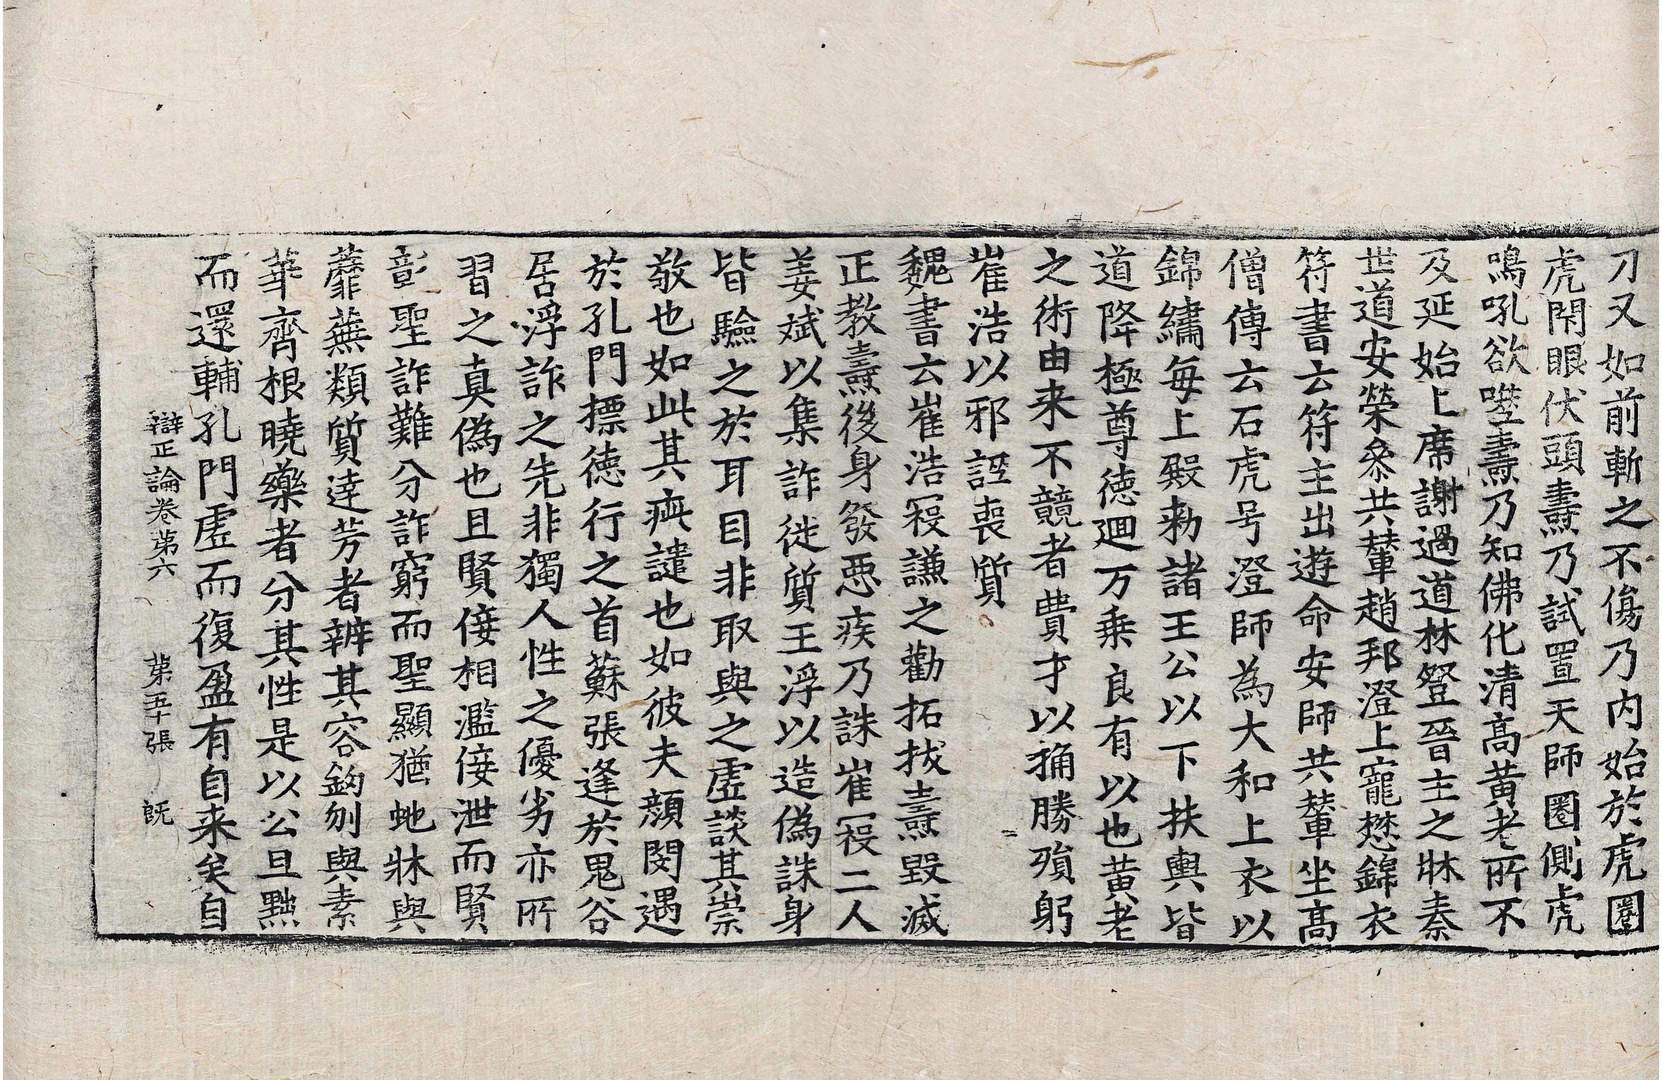 刀又如前斬之不傷乃内始於虎圈
虎閇眼伏頭燾乃試置天師圈側虎
鳴吼欲噬燾乃知佛化清高黄老所不
及延始上席謝過道林登晉主之牀秦
世道安榮叅共輦趙邦澄上寵懋錦衣
符書云符主出遊命安師共輦坐高
僧傳云石虎号澄師為大和上衣以
錦繡每上殿勑諸王公以下扶輿皆
道降極尊徳迴万乗良有以也黄老
之術由来不競者費才以捔勝殞躬
崔浩以邪詿喪質
魏書云崔浩冦謙之勸拓抜燾毀滅
正教燾後身發惡疾乃誅崔冦二人
姜斌以集詐徙質王浮以造偽誅身
皆驗之於耳目非取與之虛談其崇
敬也如此其疵譴也如彼夫顔閔遇
於孔門摽徳行之首蘇張逢於鬼谷
居浮詐之先非獨人性之優劣亦所
習之真偽也且賢倿相濫倿泄而賢
彰聖詐難分詐窮而聖顯猶虵牀與
蘼蕪類質逹芳者辨其容鈎刎與素
華齊根曉藥者分其性是以公旦黜
而還輔孔門虛而復盈有自来矣自
辯正論卷第六　第五十張　既